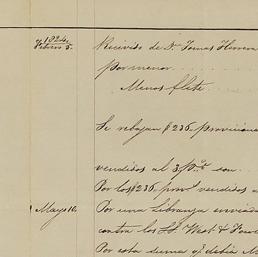 1824.
Febrero 5. Recivido de Dn. Tomas Herrera
por menor
Menos flete
Se rebajan $236. provisiona
vendidos al 3 p% son
Por los $236. prov.l vendidos a
Mayo 10. Por una Libranza enviada
contra los SS. West &
Por esta suma q.e debia